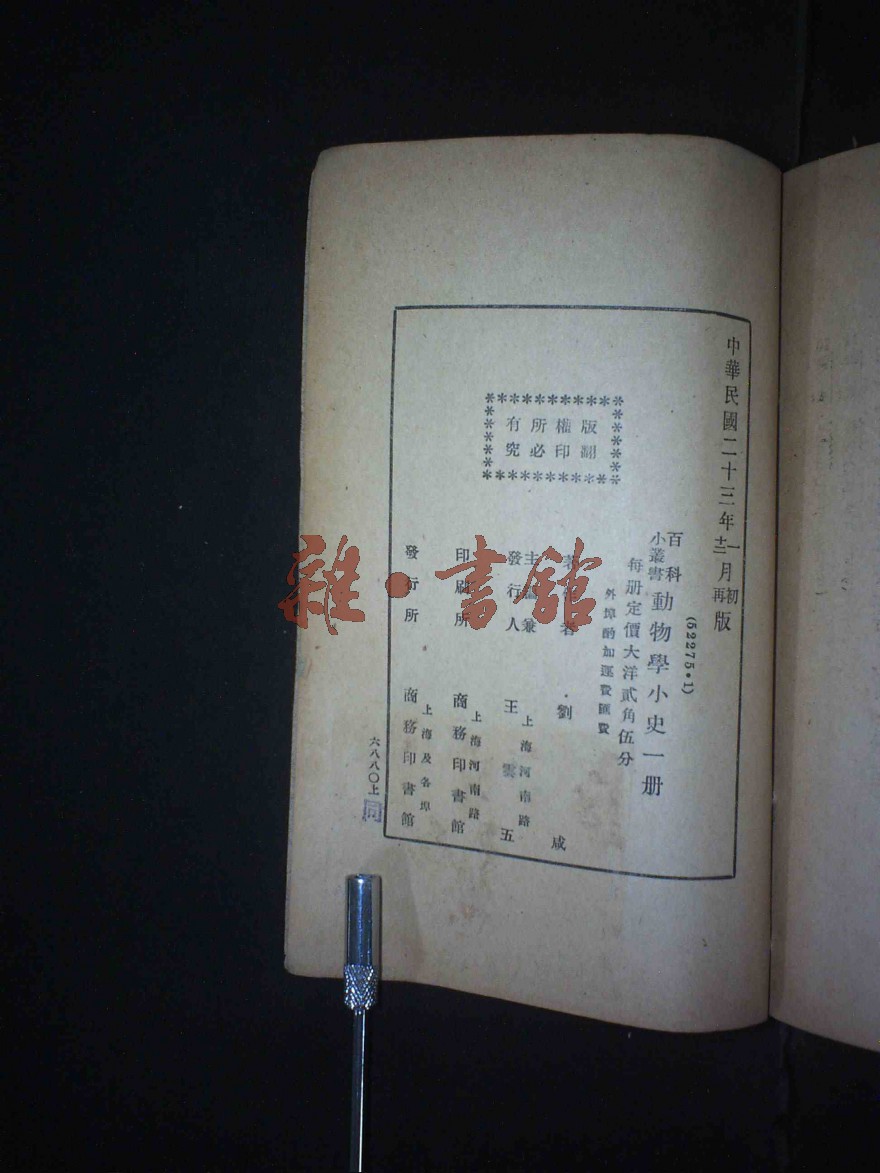 中華民國二十三年
一月初版
十二月再版
(52275·1)
百科小叢書
動物學小史一册
每册定價大洋貳角伍分
外埠酌加運費匯費
版權所有
翻印必究
著作者 劉咸
主編兼發行人 王雲五
上海河南路
印刷所 商務印書館
上海河南路
發行所 商務印書館
上海及各埠
六八八〇上
同
雜·書館